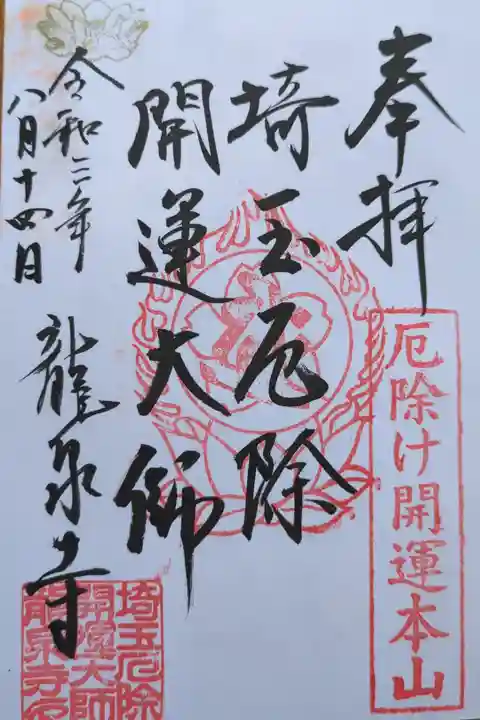 奉拝
厄除け開運本山
埼玉厄除
開運大師
令和二年
八月十四日
龍泉寺
埼玉厄除
開運大師
龍泉寺